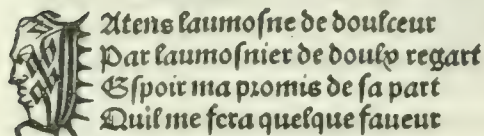 IAtens laumoſne de doulceur
Par laumoſnier de doulx regart
Eſpoir ma promis de ſa part
Quil me fera quelque faueur